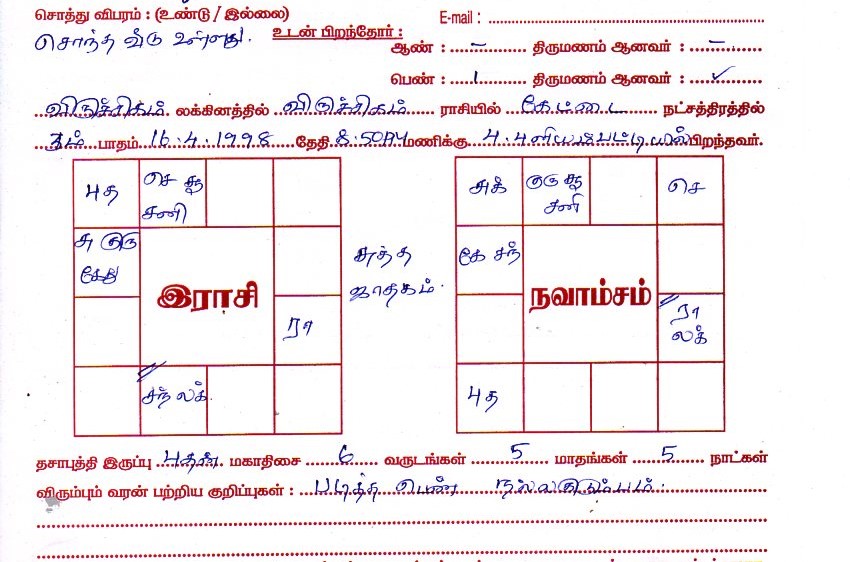 சொத்து விபரம் : (உண்டு / இல்லை)
E-mail :
சொந்த வீடு உள்ளது.
உடன் பிறந்தோர் :
ஆண் : – திருமணம் ஆனவர் : –
பெண் : 1 திருமணம் ஆனவர் : ✓
விருச்சிகம் லக்கினத்தில் விருச்சிகம் ராசியில் கேட்டை நட்சத்திரத்தில்
3ம் பாதம் 16.4.1998 தேதி 8.50PM மணிக்கு பிறந்தவர்.
புத
செ சூ
சனி
சு குரு
கேது
இராசி
ரா
சந் லக்
சுத்த
ஜாதகம்.
சுக்
குரு சூ
சனி
செ
கே சந்
நவாம்சம்
ரா
லக்
புத
தசாபுத்தி இருப்பு புதன் மகாதிசை 6 வருடங்கள் 5 மாதங்கள் 5 நாட்கள்
விரும்பும் வரன் பற்றிய குறிப்புகள் : படித்த பெண் நல்லகுடும்பம்.